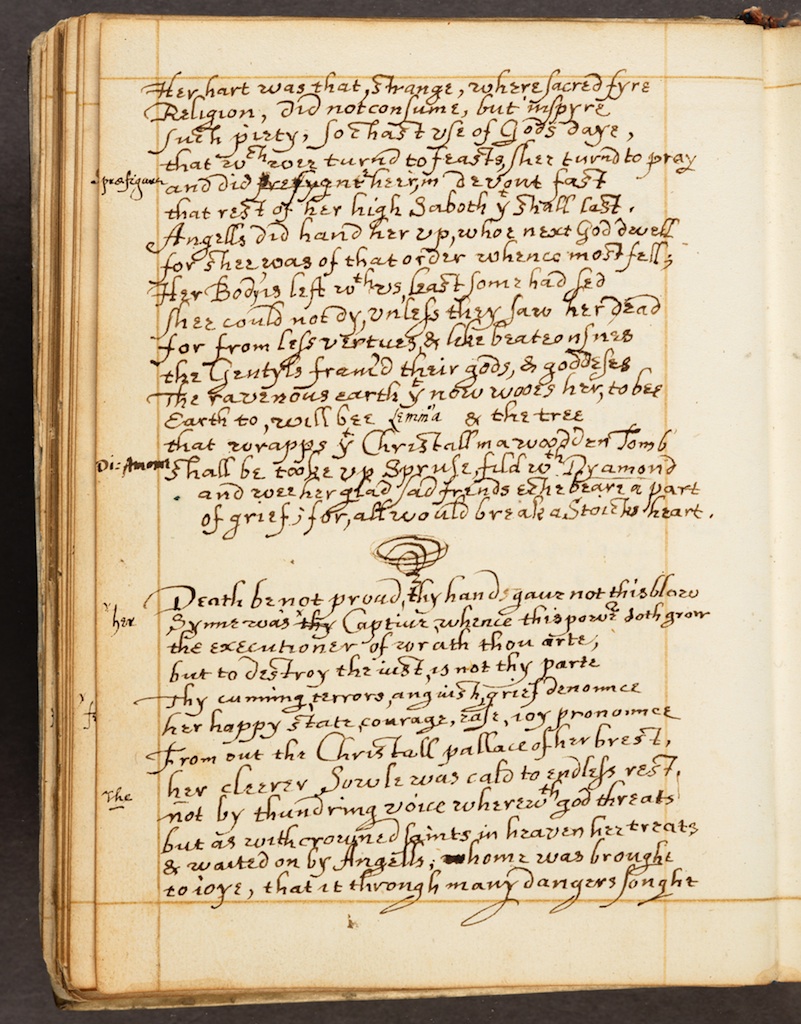 Her hart was that, strange, where sacred fyre
Religion, did not consume, but inspyre
such piety, so chast vse of Gods daye,
that wch wee turnd to feasts, shee turnd to pray
præfigure and did heere, in devout fast
that rest of her high Saboth yt shall last.
Angells did hand her vp, who next God dwell
for shee was of that order whence most fell;
Her Body is left wth vs, least some had sed
shee could not dy, vnless they saw her dead
for from less vertues, & like beateousnes
the Gentyls fram'd their gods, & goddeses
The ravenous earth yt now wooes her, to bee
Earth to, will bee Lemnia & the tree
that wrapps yt Christall in a woodden Tomb
Di: Amom shall be tooke vp Spruse, fild wth Dyamond
and wee her glad sad frends eche beare a part
of grief; for, all would break a Stoicks heart.
Death be not proud, thy hand gaue not this blow
her Synne was thy Captiue, whence this power doth grow
the executioner of wrath thou arte,
but to destroy the iust, is not thy parte
Thy cuming, terrors, anguish, grief denounce
her happy state, courage, ease, ioy pronounce
From out the Christall pallace of her brest,
her cleerer Sowle was cald to endless rest,
The not by thundring voice wherewth god threats
but as with crowned saints in heaven hee treats
& waited on by Angells, home was brought
to ioye, that it through many dangers sought